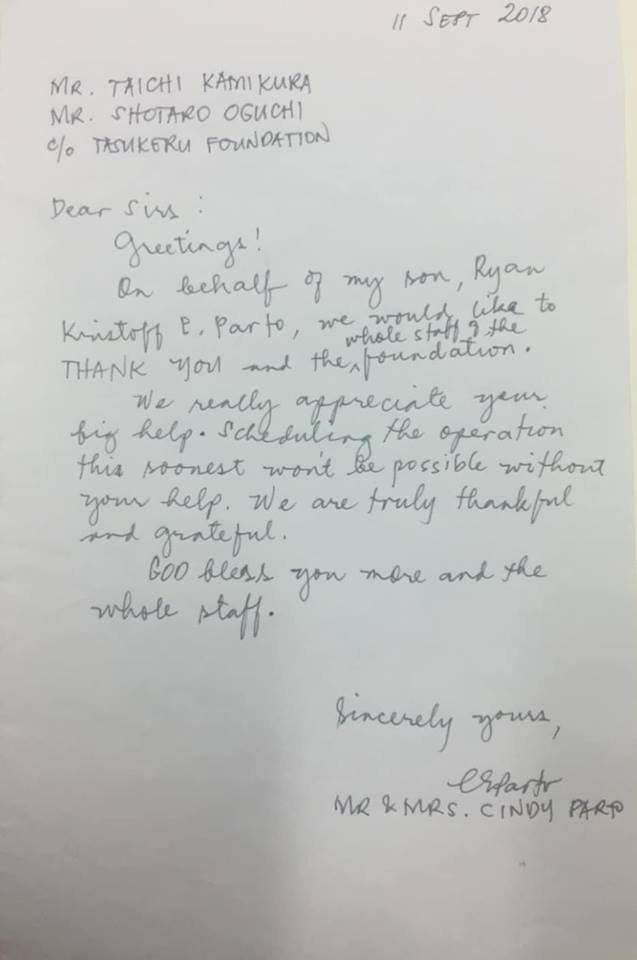 11 SEPT 2018
MR. TAICHI KAMIKURA
MR. SHOTARO OGUCHI
c/o TASUKERU FOUNDATION
Dear Sirs :
Greetings!
On behalf of my son, Ryan
Kinstoff P. Parto, we would like to
whole staff of the
THANK YOU and the ^ foundation.
We really appreciate your
big help. Scheduling the operation
this soonest won't be possible without
your help. We are truly thankful
and grateful.
GOD bless you more and the
whole staff.
Sincerely yours,
MR & MRS. CINDY PARTO